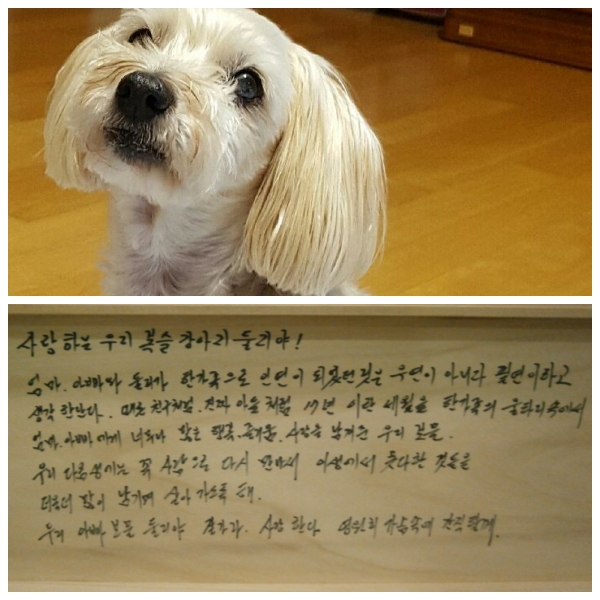 사랑하는 우리 복슬강아지 둘리야!
엄마. 아빠와 둘리가 한가족으로 인연이 되었던것은 우연이 아니라 필연이라고
생각 한단다. 때로 친구처럼. 친자 아들처럼 17년 이란 세월을 한가족의 울타리속에서
엄마. 아빠에게 너무나 많은 행복. 즐거움. 사랑을 남겨준 우리 보물.
우리 다음생에는 꼭 사람으로 다시 만나서 이생에서 못다한 것들을
더욱더 많이 남기며 살아 가도록 해.
우리 아빠 보물 둘리야 잘가라. 사랑한다 영원히 가슴속에 간직할게.